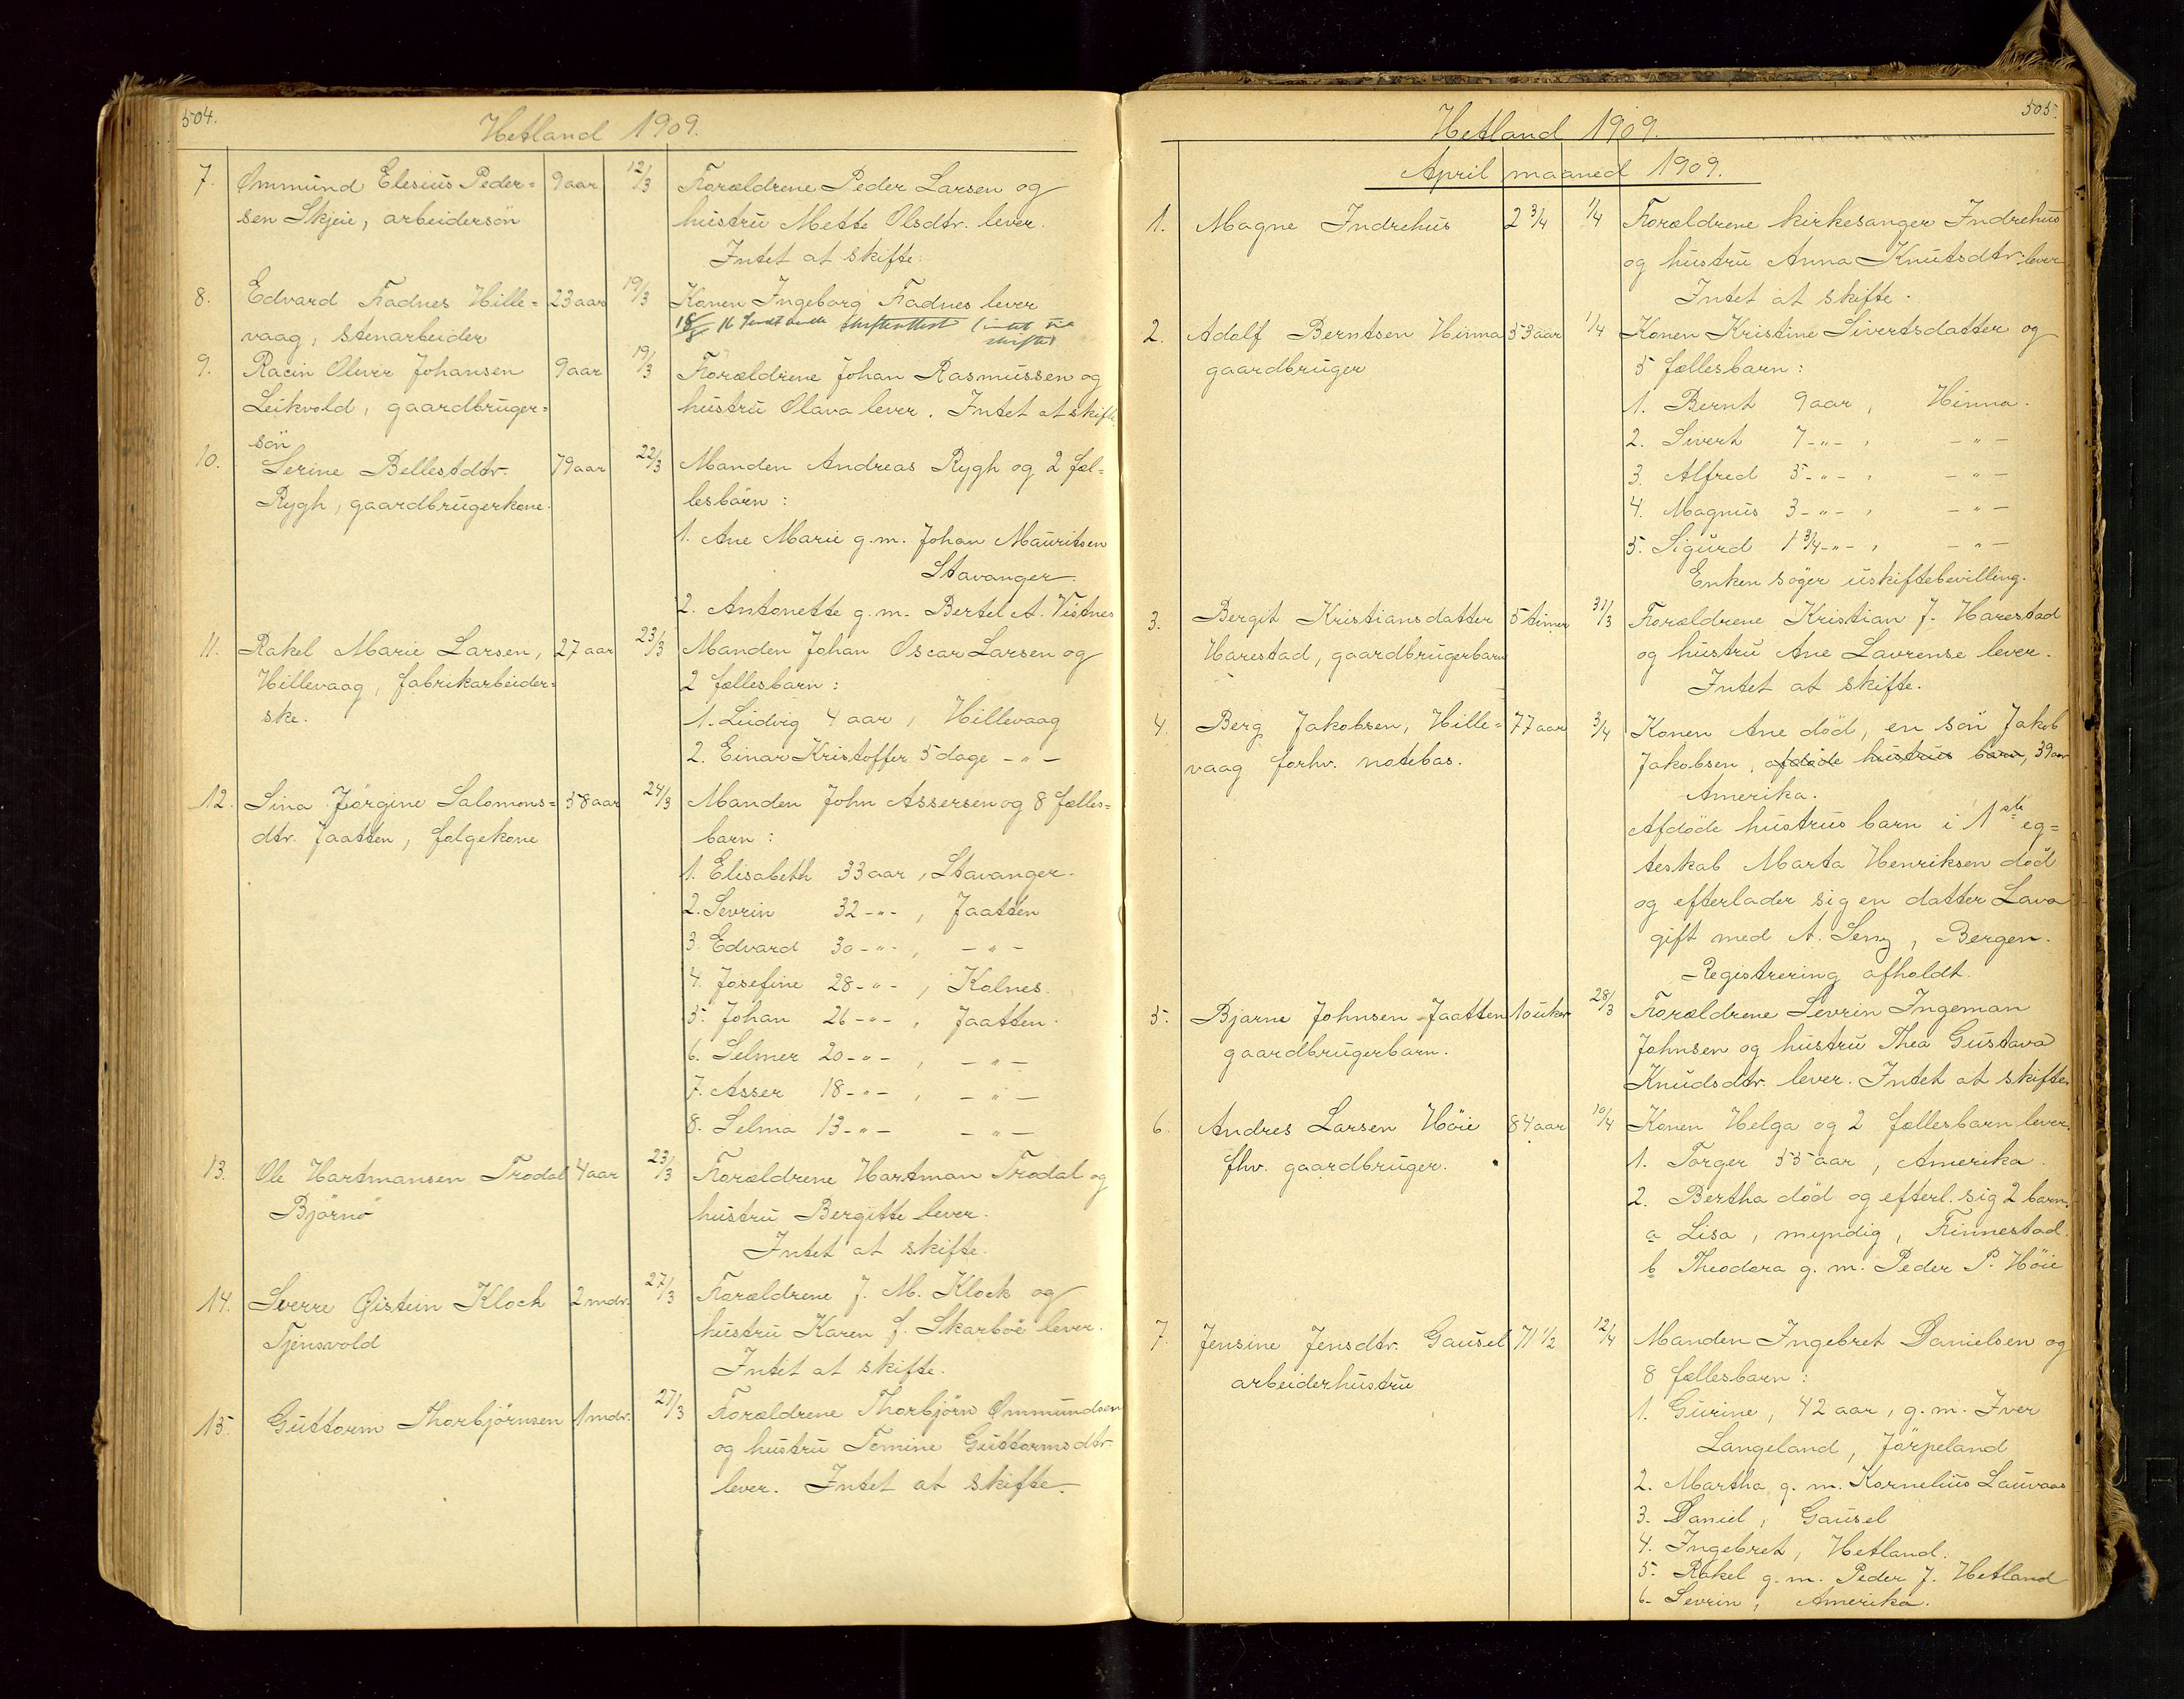 504.
Hetland 1909.
7. Ommund Elesius Peder= 9 aar 12/3 Forældrene Peder Larsen og
sen Skjeie, arbeidersön hustru Mette Olsdtr. lever.
Intet at skifte.
8. Edvard Fadnes Hille= 23 aar 19/3 Konen Ingeborg Fadnes lever
vaag, stenarbeider
9. Racin Oliver Johansen 9 aar 19/3 Forældrene Johan Rasmussen og
Leikvold, gaardbruger= hustru Olava lever. Intet at skifte
sön
10. Serine Bellestdtr. 79 aar 22/3 Manden Andreas Rygh og 2 fæl=
Rygh, gaardbrugerkone. lesbarn:
1. Ane Marie g.m. Johan Mauritsen
Stavanger.
2. Antonette g.m. Bertel A. Vistnes
11. Rakel Marie Larsen, 27 aar 23/3 Manden Johan Oscar Larsen og
Hillevaag, fabrikarbeider= 2 fællesbarn:
ske. 1. Ludvig 4 aar, Hillevaag
2. Einar Kristoffer 5 dage - " -
12. Sina Jörgine Salomons= 58 aar 24/3 Manden John Assersen og 8 fælles=
dtr. Jaatten, følgekone barn:
1. Elisabeth 33 aar, Stavanger.
2. Sevrin 32 - " -, Jaatten
3. Edvard 30 - " -, - " -
4. Josefine 28 - " -, Kalnes.
5. Johan 26 - " -, Jaatten.
6. Selmer 20 - " -, - " -
7. Asser 18 - " -, - " -
8. Selma 13 - " - - " -
13. Ole Hartmansen Trodal 4 aar 23/3 Forældrene Hartman Trodal og
Björnö hustru Bergitte lever.
Intet at skifte.
14. Sverre Øistein Klock 2 mdr. 27/3 Forældrene J. M. Klock og
Tjensvold hustru Karen f. Skarboe lever.
Intet at skifte.
15. Guttorm Thorbjörnsen 1 mdr. 27/3 Forældrene Thorbjörn Ommundsen
og hustru Temine Guttormsdtr.
lever. Intet at skifte.
505.
Hetland 1909.
April maaned 1909.
1. Magne Indrehus 2 3/4 1/4 Forældrene kirkesanger Indrehus
og hustru Anna Knutsdtr. lever
Intet at skifte.
2. Adolf Berntsen Hinna 53 aar 1/4 Konen Kristine Sivertsdatter og
gaardbruger 5 fællesbarn:
1. Bernt 9 aar, Hinna.
2. Sivert 7 - " -, - " -
3. Alfred 5 - " -, - " -
4. Magnus 3 - " -, - " -
5. Sigurd 1 3/4 - " -, - " -
Enken söger uskiftebevilling.
3. Bergit Kristiansdatter 5 timer 31/3 Forældrene Kristian J. Harestad
Harestad, gaardbrugerbarn og hustru Ane Lavrense lever.
Intet at skifte.
4. Berg Jakobsen, Hille= 77 aar 3/4 Konen Ane död, en sön Jakob
vaag forhv. notebas. Jakobsen, afdöde hustrus barn, 39 aar
Amerika.
Afdöde hustrus barn i 1ste eg=
teskab Marta Henriksen död
og efterlader sig en datter Lava
gift med A. , Bergen.
Registrering afholdt.
5. Bjarne Johnsen Jaatten 10 uker 28/3 Forældrene Sevrin Ingeman
gaardbrugerbarn. Johnsen og hustru Thea Gustava
Knudsdtr. lever. Intet at skifte.
6. Andres Larsen Höie 84 aar 10/4 Konen Helga og 2 fællesbarn lever.
fhv. gaardbruger. 1. Torger 55 aar, Amerika.
2. Bertha död og efterl. sig 2 barn.
a Lisa, myndig, Finnestad.
b Theodora g. m. Peder P. Höie
7. Jensine Jensdtr. Gausel 71 1/2 12/4 Manden Ingebret Danielsen og
arbeiderhustru 8 fællesbarn:
1. Gurine, 42 aar, g. m. Iver
Langeland, Jörpeland
2. Martha g. m. Kornelius Lauvaas
3. Daniel, Gausel
4. Ingebret, Hetland.
5. Rakel g. m. Peder J. Hetland
6. Sevrin, Amerika.